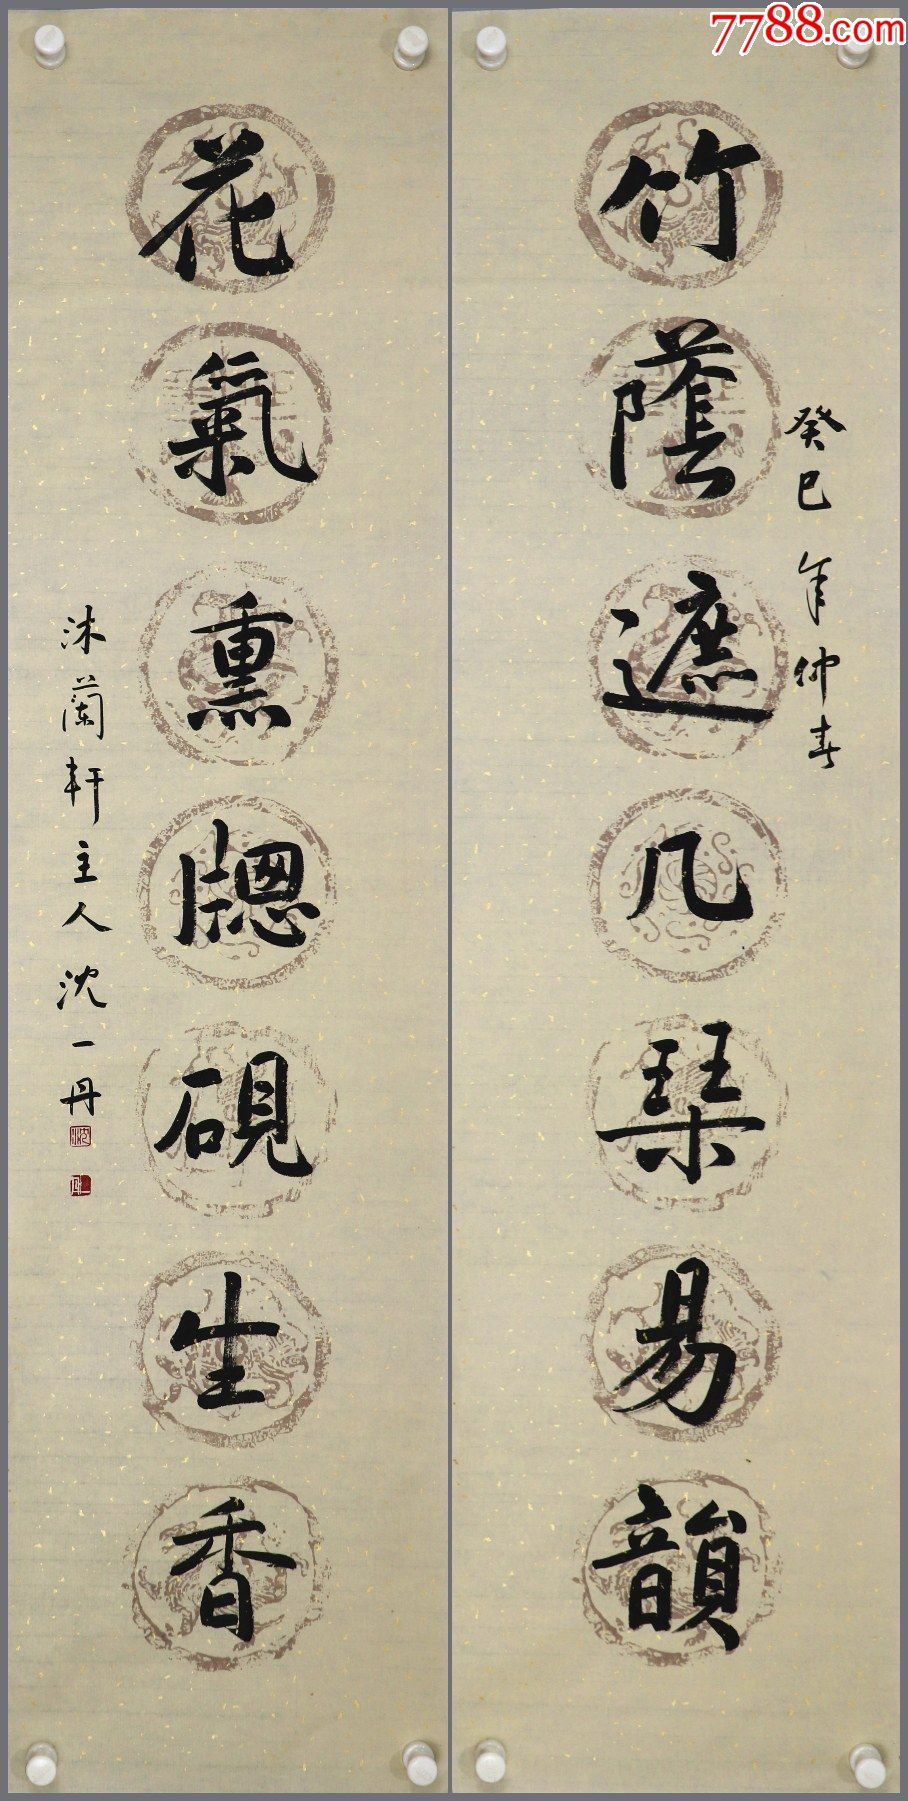 7788.com
竹蔭遮几琹易韻
癸巳年仲春
花氣熏牕硯生香
沐蘭軒主人沈一丹